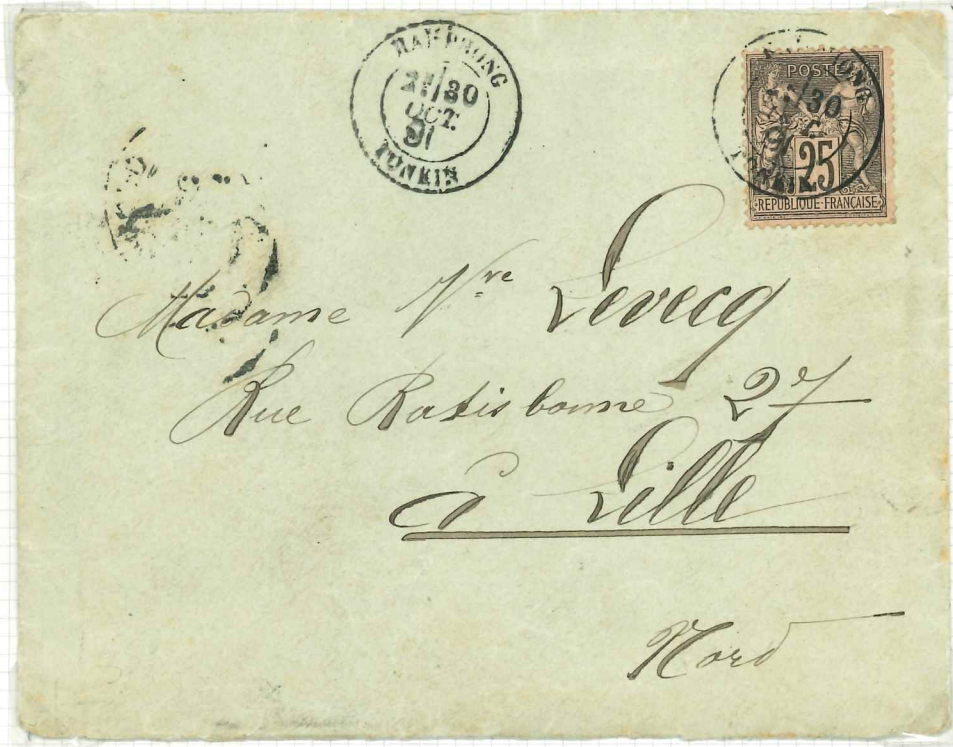 HAIPHONG
30
OCT.
91
TONKIN
POSTE
30
91
TONKIN
25
REPUBLIQUE FRANÇAISE
Madame Vve Levecq
Rue Ratisbonne 27
à Lille
Nord